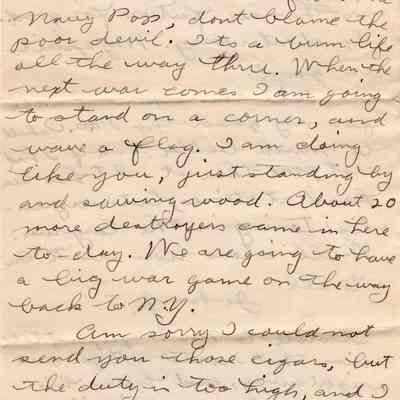 Navy Pop, dont blame the
poor devil. Its a bum life
all the way thru. When the
next war comes I am going
to stand on a corner, and
wave a flag. I am doing
like you, just standing by
and sawing wood. About 20
more destroyers came in here
to-day. We are going to have
a big war game on the way
back to N.Y.
Am sorry I could not
send you those cigars, but
the duty is too high, and I